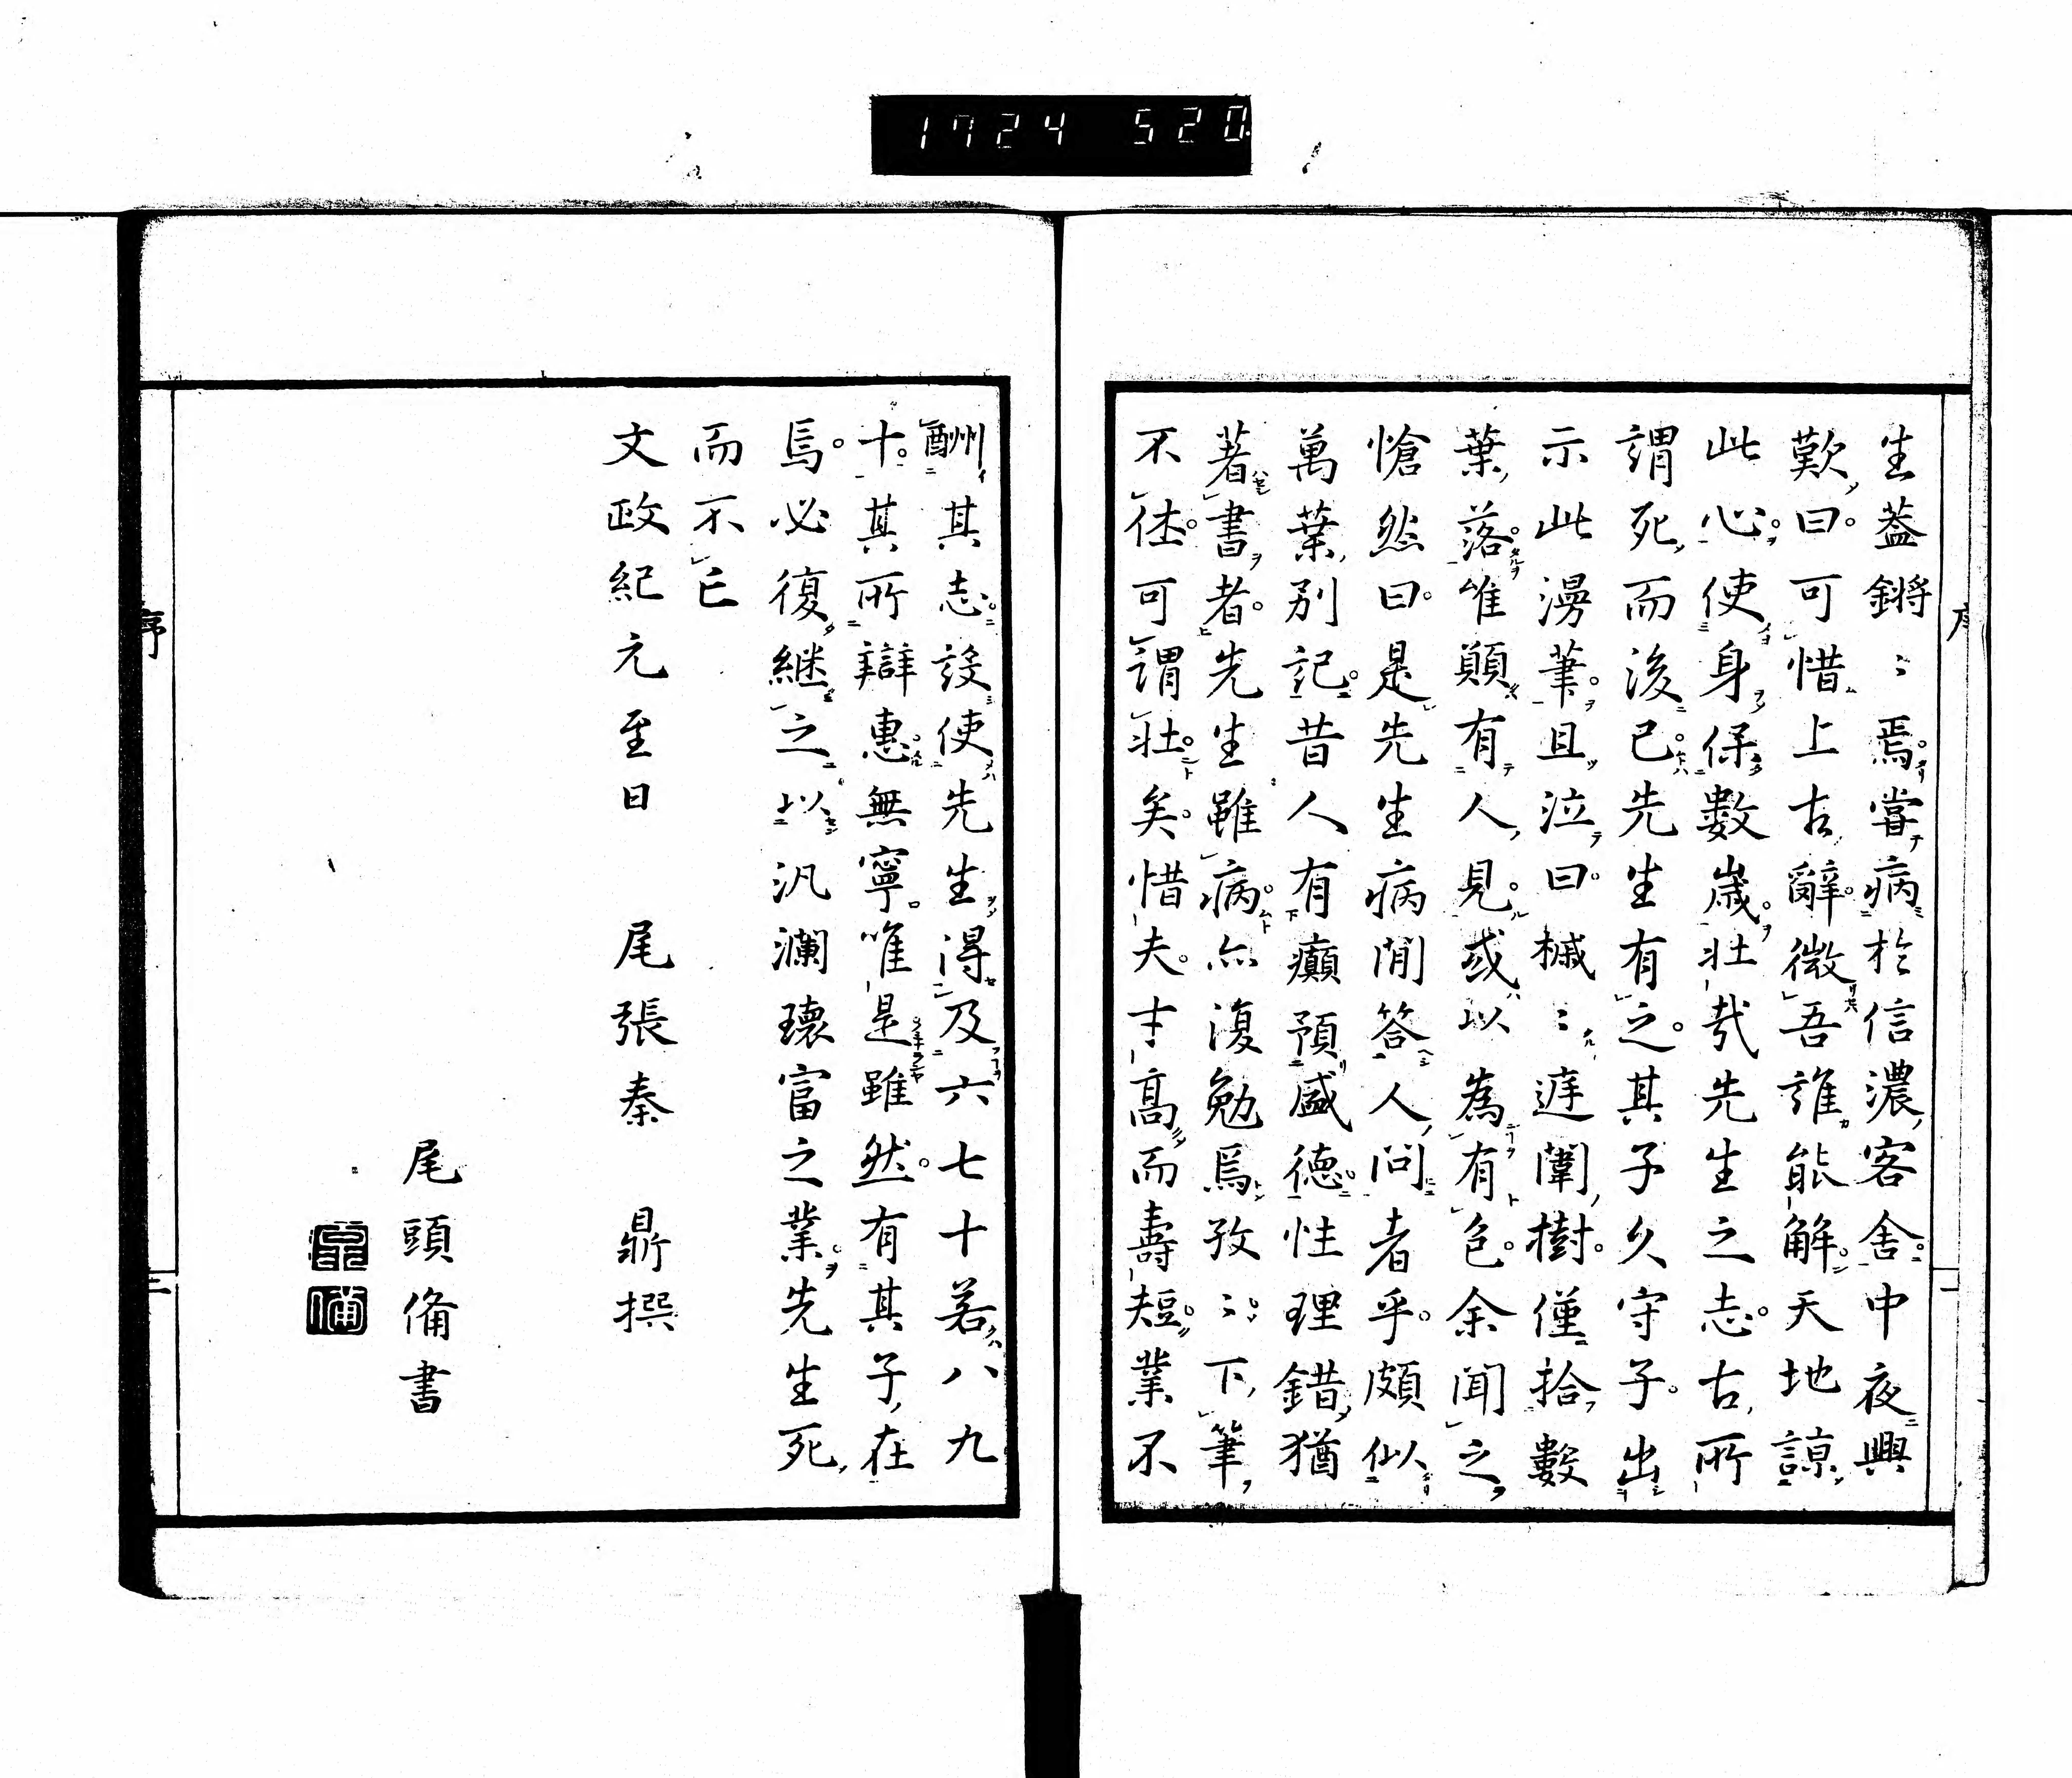 1724 520
序
二
生蓋鏘〻焉。嘗病於信濃客舎。中夜興
歎曰。可惜上古辭微。吾誰能解。天地諒
此心。使身保數歳。壯哉先生之志。古所
謂死而後已。先生有之。其子久守子。出
示此漫筆。且泣曰。槭〻遅闈樹。僅拾數
葉落。唯顛有人見。或以為有色。余聞之
愴然曰。是先生病閒答人問者乎。頗似
萬葉別記。昔人有癲預盛德。性理錯猶
著書者。先生雖病。亦復勉焉。孜〻。下筆
不徃。可謂壯矣。惜夫。才高而壽短。業不
酬其志。設使先生得及六七十若八九
十。其所辯惠無寧。唯是雖然。有其子在
焉。必復継之。以汎瀾瓌富之業。先生死
而不已
文政紀元至日　尾張秦　鼎撰
尾頭脩書
序
二